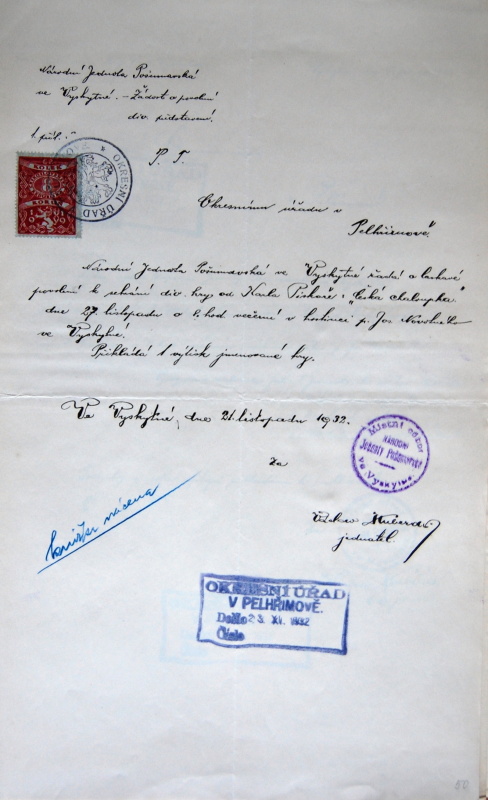 Národní Jednota Pošumavská
ve Vyskytné. – Žádost o povolení
div. představení.
1 příl.
OKRESNÍ ÚŘAD
KOLEK
5
P. T.
Okresnímu úřadu v
Pelhřimově.
Národní Jednota Pošumavská ve Vyskytné žádá o laskavé
povolení k sehrání div. hry od Karla Piskoře: "Česká chaloupka"
dne 27. listopadu o 8. hod. večerní v hostinci p. Jos. Novotného
ve Vyskytné.
Přikládá 1 výtisk jmenované hry.
Ve Vyskytné, dne 21. listopadu 1932.
Místní odbor
NÁRODNÍ
Jednoty Pošumavské
ve Vyskytné
Za
jednatel.
knížka vrácena
OKRESNÍ ÚŘAD
V PELHŘIMOVĚ.
Došlo 23. XI. 1932
Číslo
50